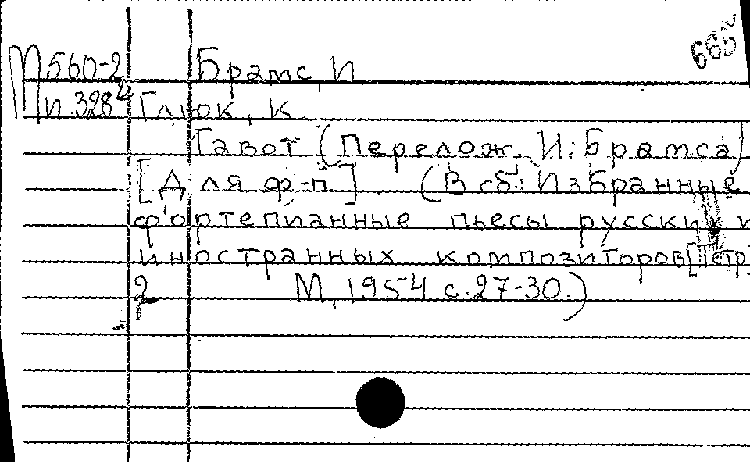 665
М560-2 Брамс, И
М п.328 Глюк, К.
Гавот (Перелож. И. Брамса)
[Для ф-п]. (В сб: Избранные
фортепианные пьесы русских и
иностранных композиторов [Тетр
2 М, 1954 с.27-30.)